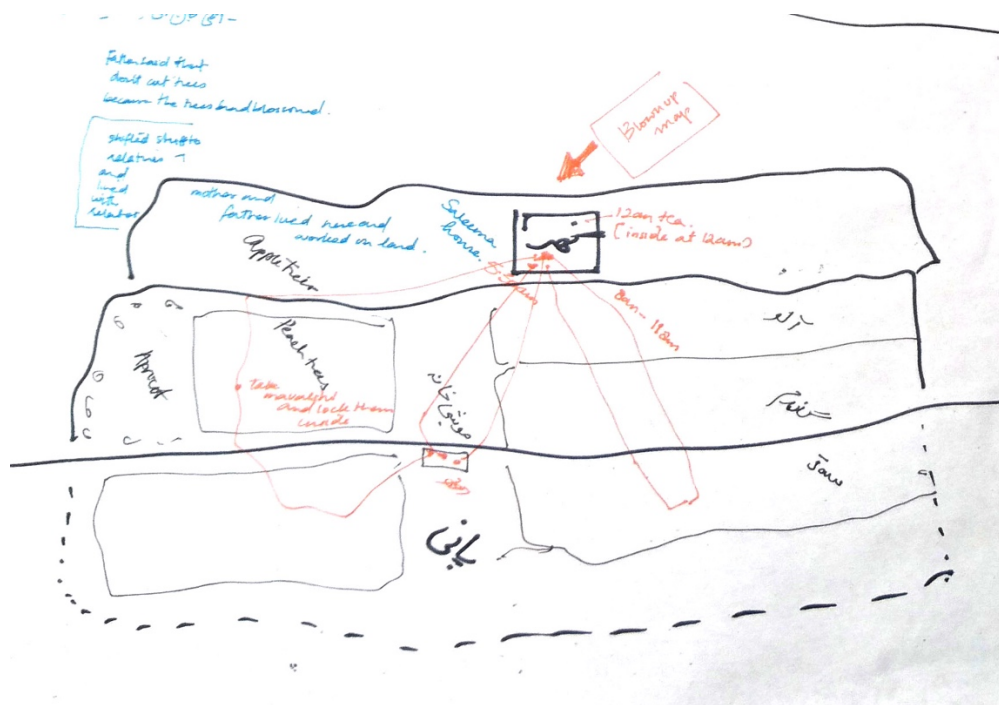 Father said that
don't cut trees
because the trees had blossomed.
shifted stuff to
relatives
and
lived
with
relatives
Blown up
map
mother and
father lived here and
worked on land.
Saleema
house.
12am tea.
(inside at 12am)
5:30am
8am - 11am
Apple trees
Peach trees
Apricot
take
and lock them
inside
مویشی خانہ
آلو
گندم
پانی